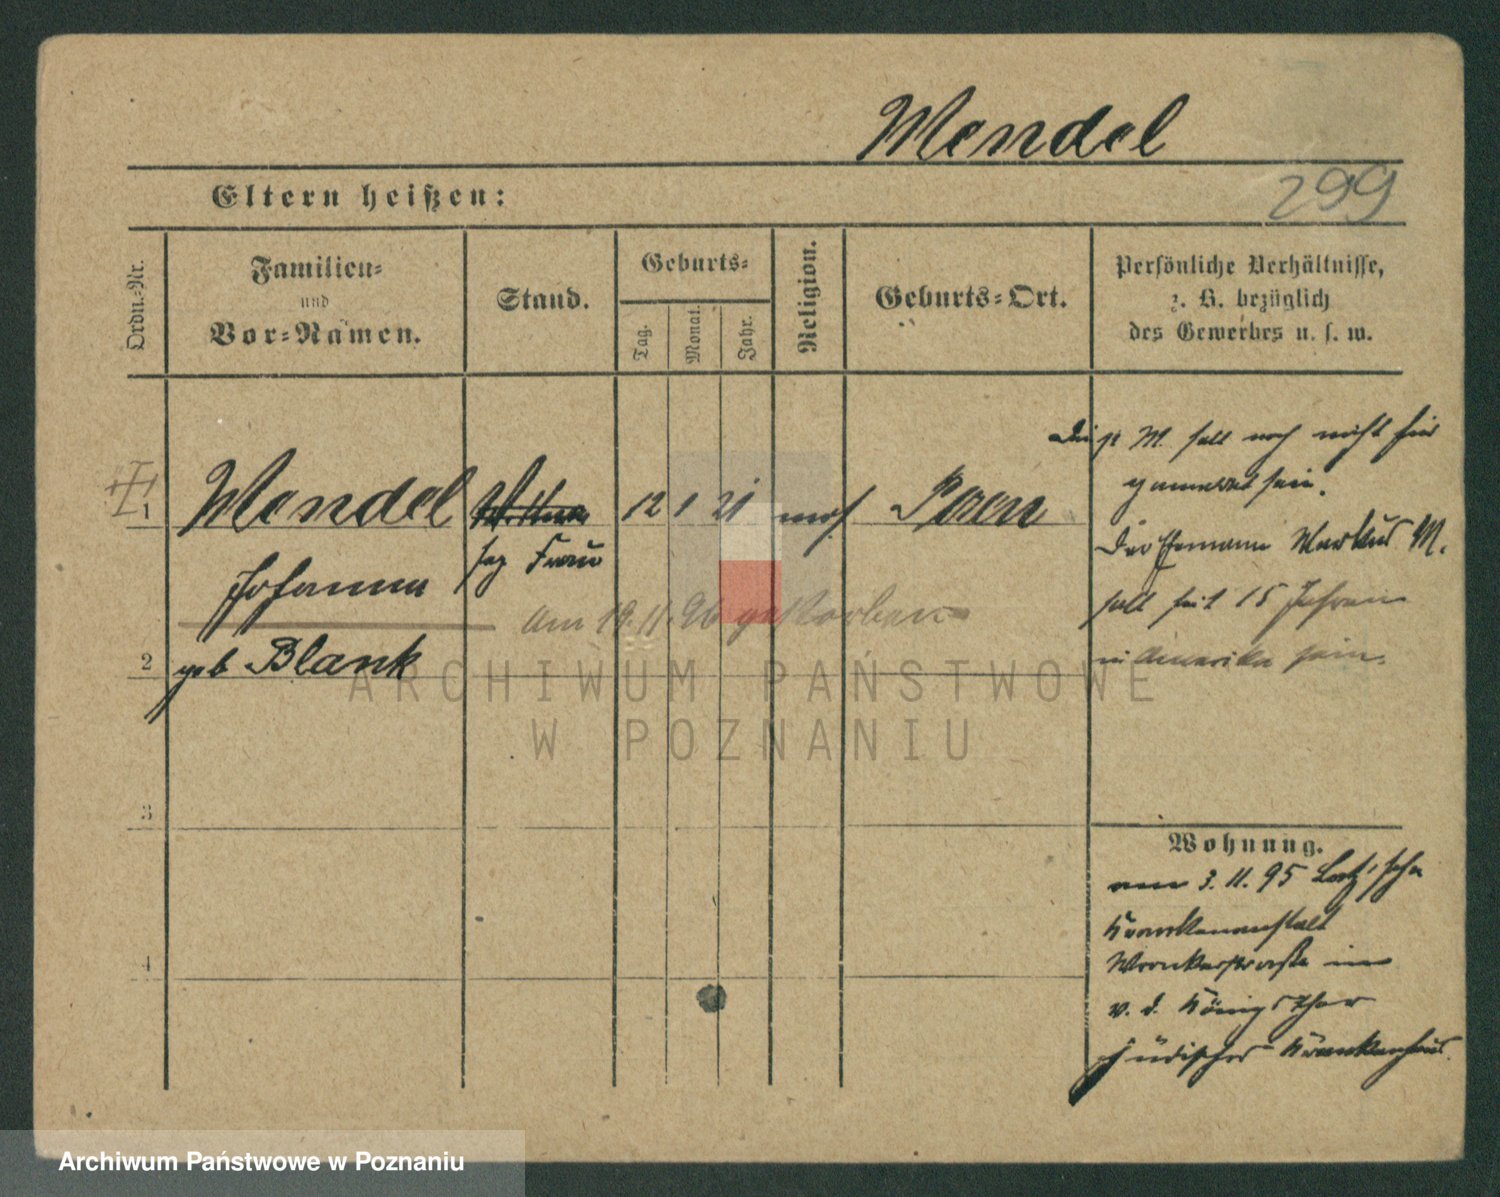 Mendel
299
Eltern heißen:
Ordn.-Nr.
Familien-
und
Vor-Namen.
Stand.
Geburts-
Tag.
Monat.
Jahr.
Religion.
Geburts-Ort.
Persönliche Verhältnisse,
z. B. bezüglich
des Gewerbes u. s. w.
1
Mendel
Johanna
geb Blank
Wittwe
sep Frau
12 1 21
mos
Posen
am 19.11.96 gestorben
M. soll noch nicht hier
gemeldet sein.
Der Ehemann Markus M.
soll seit 15 Jahren
in Amerika sein.
2
3
4
Wohnung.
am 3. 11. 95
Krankenanstalt
Wronkerstraße
v. d. Königsthor
jüdisches Krankenhaus
ARCHIWUM PAŃSTWOWE
W POZNANIU
Archiwum Państwowe w Poznaniu